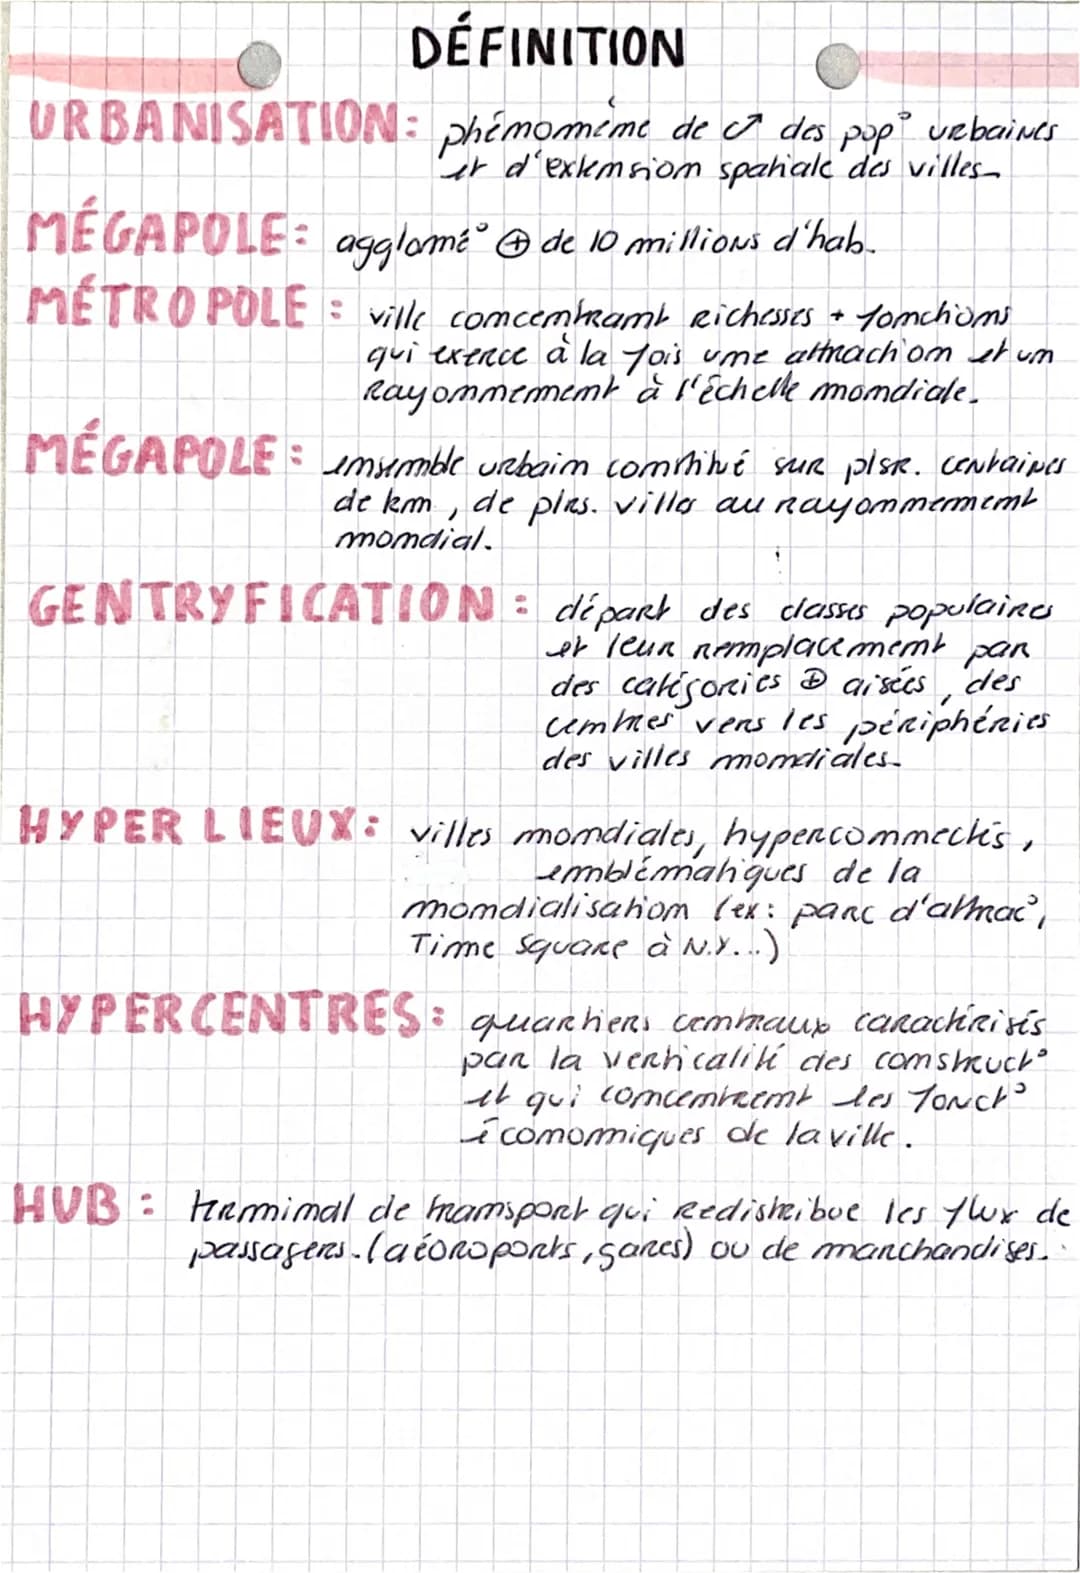 DÉFINITION
URBANISATION: phénomène de ↗ des pop° urbaines
et d'extension spatiale des villes
MÉGAPOLE: agglomé° ⊕ de 10 millions d'hab.
MÉTROPOLE: ville concentrant richesses + fonctions
qui exerce à la fois une attraction et un
rayonnement à l'échelle mondiale.
MÉGAPOLE: ensemble urbain constitué sur plsr. centaines
de km, de plrs. villes au rayonnement
mondial.
GENTRYFICATION: départ des classes populaires
et leur remplacement par
des catégories ⊕ aisées, des
centres vers les périphéries
des villes mondiales.
HYPER LIEUX: villes mondiales, hyperconnectés,
emblématiques de la
mondialisation (ex: parc d'attrac°,
Time Square à N.Y...)
HYPERCENTRES: quartiers centraux caractérisés
par la verticalité des construct°
et qui concentrent les fonct°
économiques de la ville.
HUB: terminal de transport qui redistribue les flux de
passagers. (aéoroports, gares) ou de marchandises.